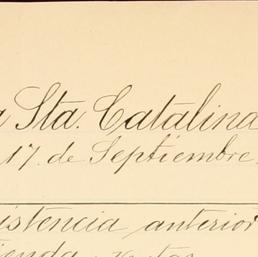 a Sta. Catalina
17. de Septiembre
istencia anterior
ienda